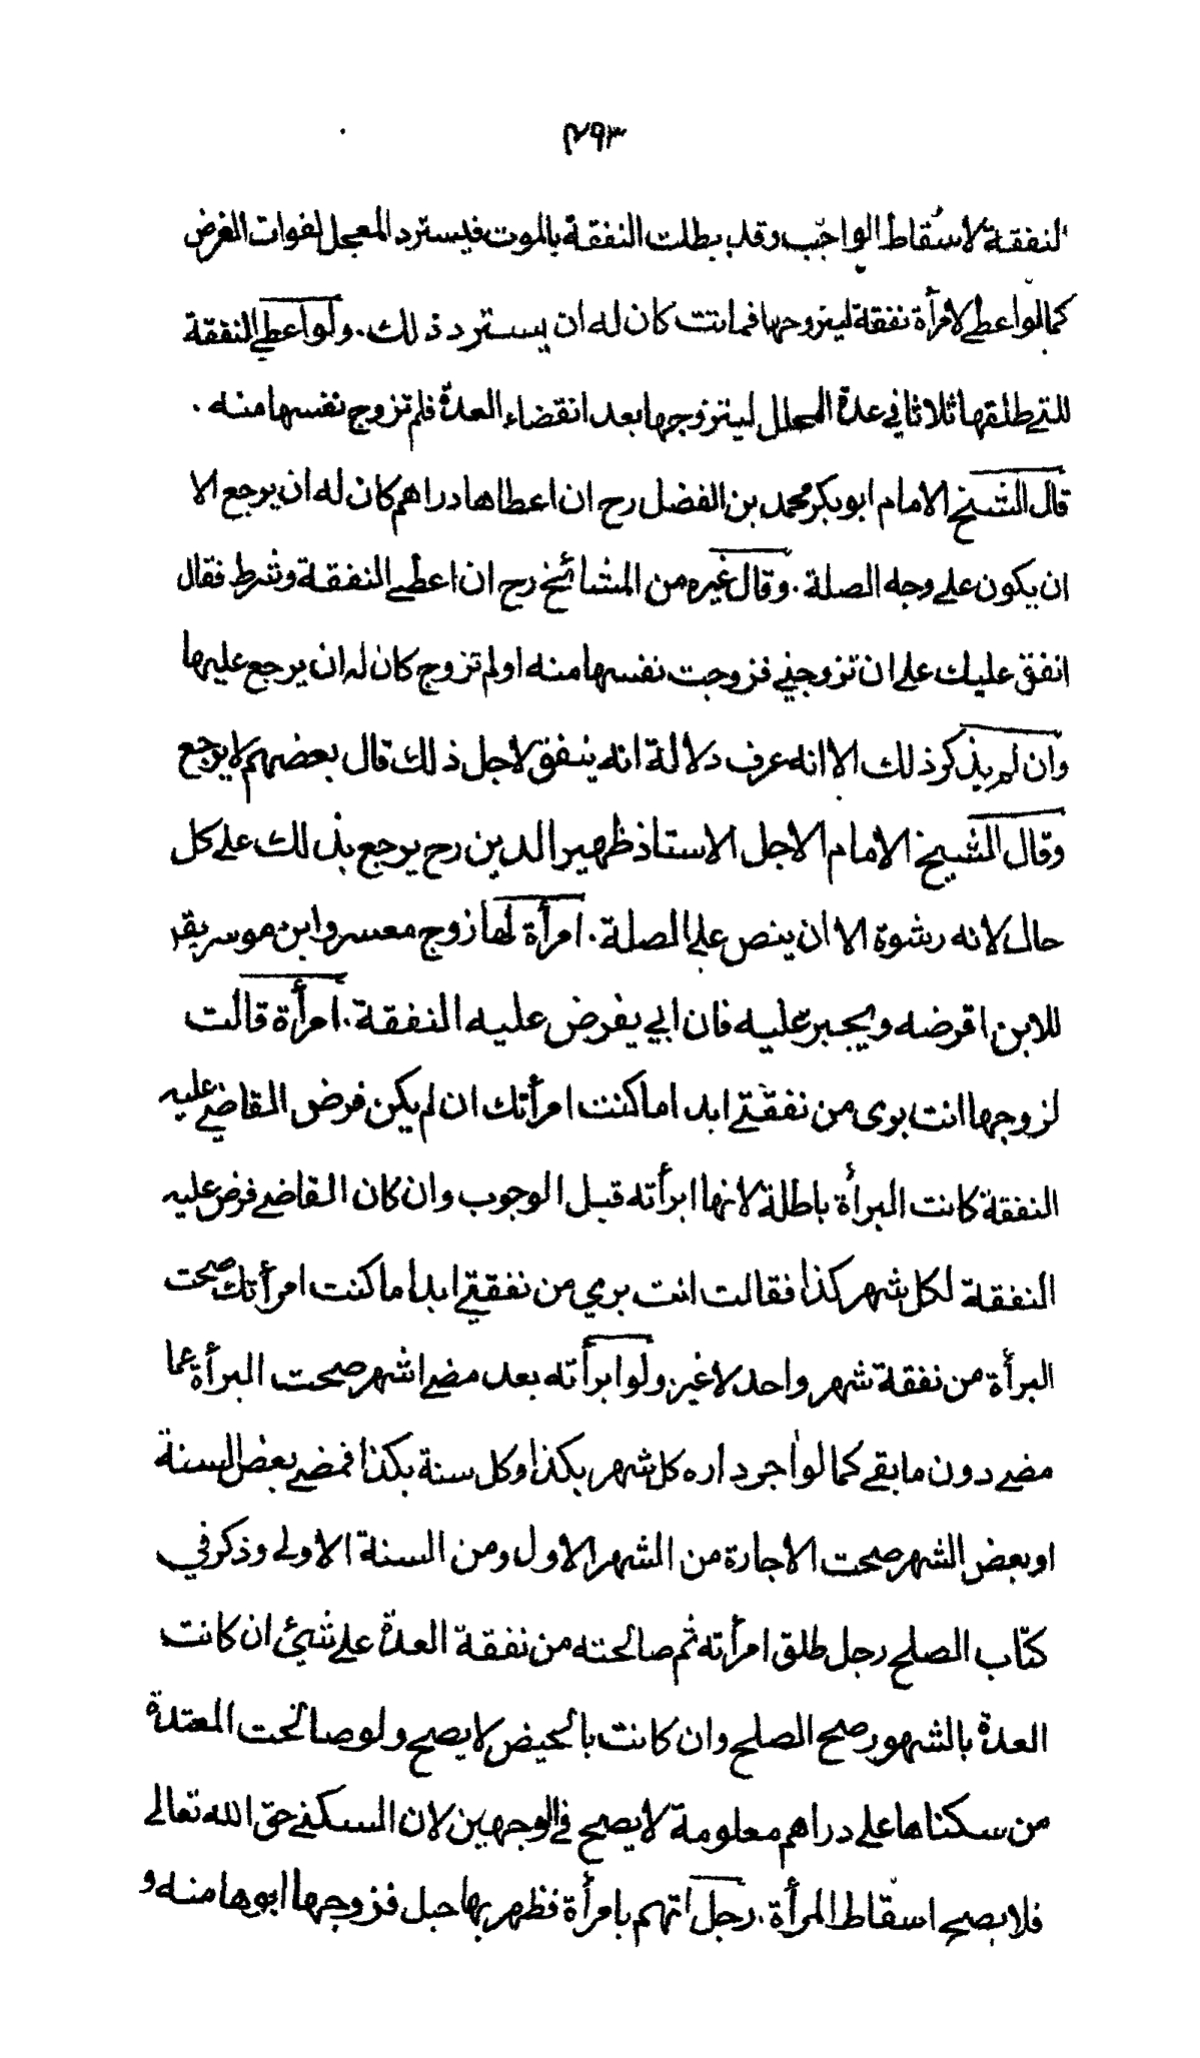 ۴۹۳
النفقة لاسقاط الواجب وقد بطلت النفقة بالموت فيسترد المعجل لفوات الغرض
كما لو اعطى لامرأة نفقة ليتزوجها فماتت كان له ان يسترد ذلك . ولو اعطى النفقة
للتي طلقها ثلاثا في عدة المحلل ليتزوجها بعد انقضاء العدة فلم تزوج نفسها منه .
قال الشيخ الامام ابو بكر محمد بن الفضل رح ان اعطاها دراهم كان له ان يرجع الا
ان يكون على وجه الصلة . وقال غيره من المشائخ رح ان اعطى النفقة وشرط فقال
انفق عليك على ان تزوجني فزوجت نفسها منه او لم تزوج كان له ان يرجع عليها
وان لم يذكر ذلك الا انه عرف دلالة انه ينفق لاجل ذلك قال بعضهم لا يرجع
وقال الشيخ الامام الاجل الاستاذ ظهير الدين رح يرجع بذلك على كل
حال لانه رشوة الا ان ينص على الصلة . امرأة لها زوج معسر وابن موسر يقر
للابن اقرضه ويجبر عليه فان ابى يفرض عليه النفقة . امرأة قالت
لزوجها انت برى من نفقتي ابدا ما كنت امرأتك ان لم يكن فرض القاضي عليه
النفقة كانت البرأة باطلة لانها ابرأته قبل الوجوب وان كان القاضي فرض عليه
النفقة لكل شهر كذا فقالت انت بري من نفقتي ابدا ما كنت امرأتك صحت
البرأة من نفقة شهر واحد لا غير ولو ابرأته بعد مضى اشهر صحت البرأة عما
مضى دون ما بقى كما لو أجر داره كل شهر بكذا وكل سنة بكذا فمضى بعض السنة
او بعض الشهر صحت الاجارة من الشهر الاول ومن السنة الاولى وذكر في
كتاب الصلح رجل طلق امرأته ثم صالحته من نفقة العدة على شيئ ان كانت
العدة بالشهور صح الصلح وان كانت بالحيض لا يصح ولو صالحت المعتدة
من سكناها على دراهم معلومة لا يصح في الوجهين لان السكنى حق الله تعالى
فلا يصح اسقاط المرأة . رجل اتهم بامرأة فظهر بها حبل فزوجها ابوها منه و